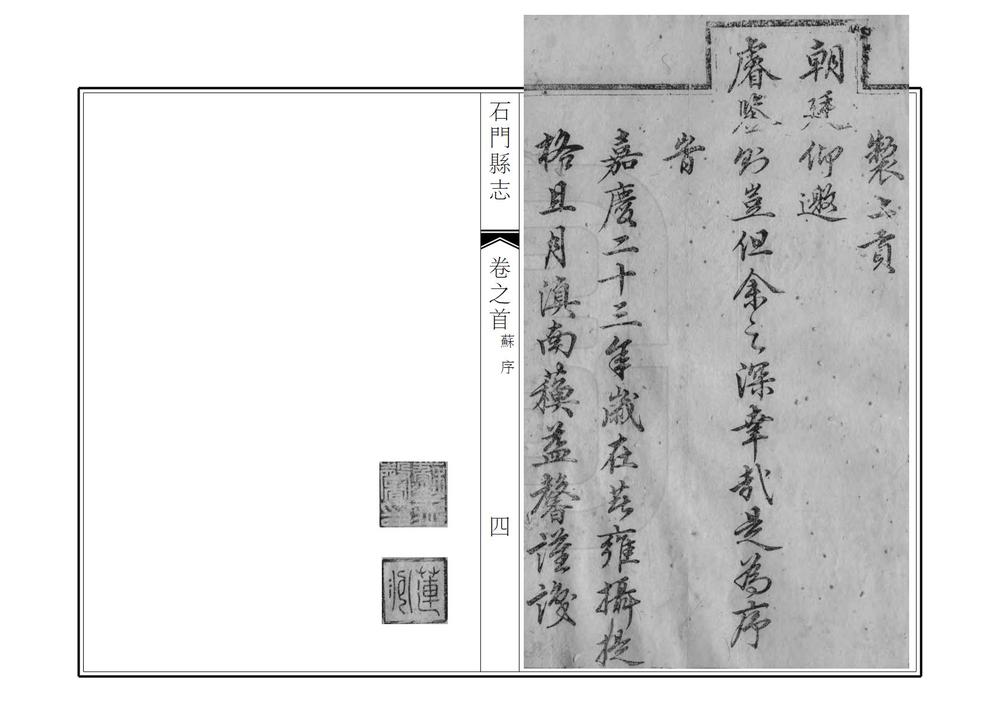 製上貢
朝廷仰邀
睿鑒則豈但余之深幸哉是為序
旹
嘉慶二十三年歲在著雍攝提
格且月滇南蘇益馨謹譔
石門縣志
卷之首
蘇序
四